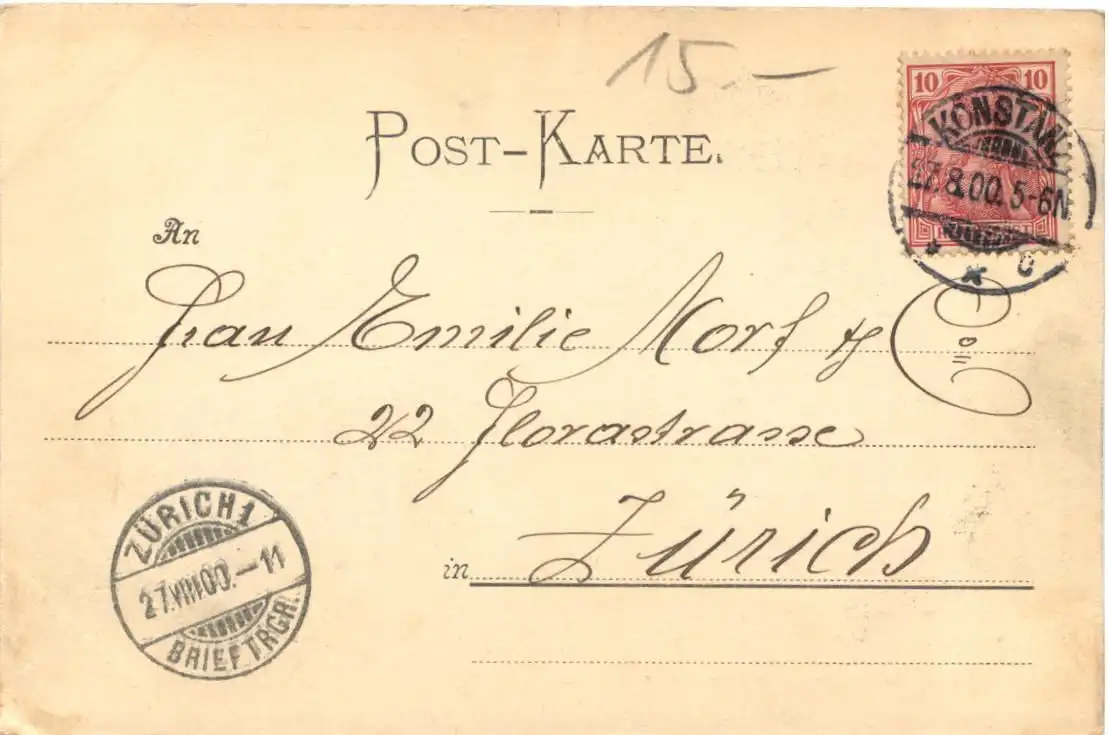 15 –
POST-KARTE.
10 10
KONSTANZ
27.8.00.5-6N
* c
An
Frau Emilie Morf & Co
22 Florastrasse
in Zürich
ZÜRICH 1
27.VIII.00.–11
BRIEFTRGR.